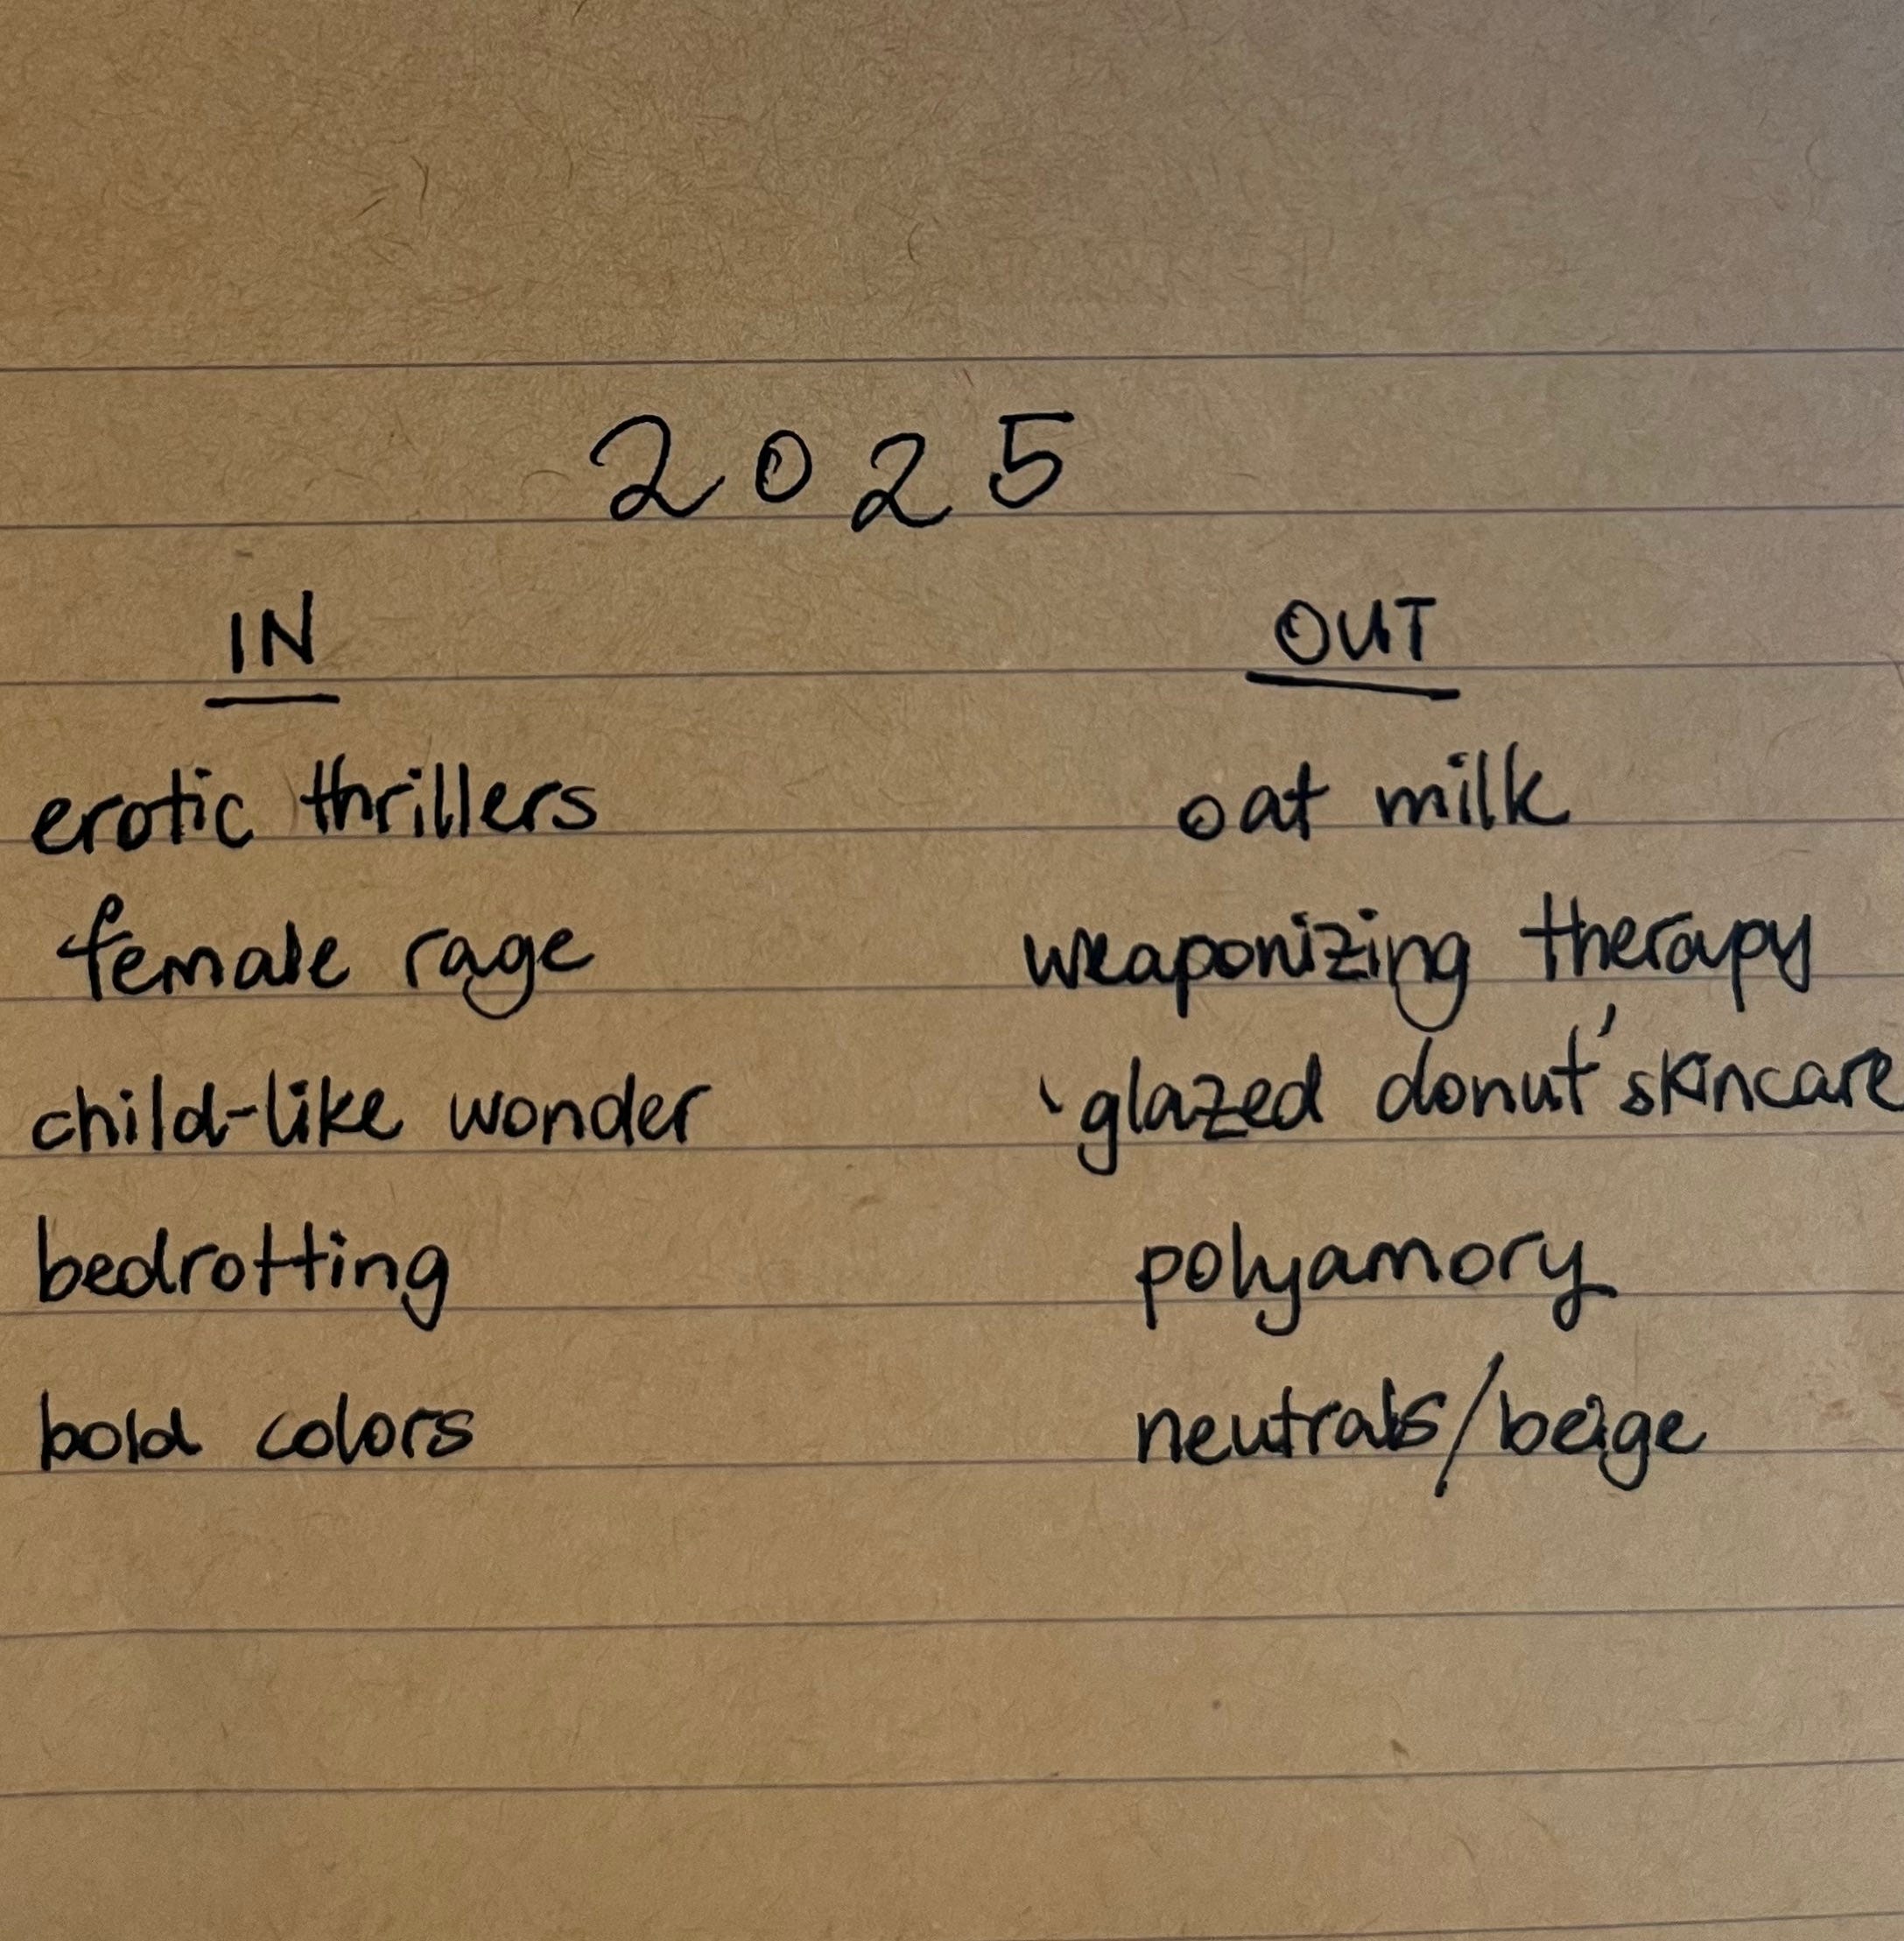 2025
IN OUT
erotic thrillers oat milk
female rage weaponizing therapy
child-like wonder 'glazed donut' skincare
bedrotting polyamory
bold colors neutrals/beige